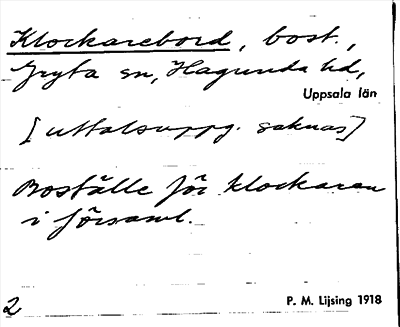 Klockarebord, bost.,
Gryta sn, Hagunda hd,
Uppsala län
[uttalsuppg. saknas]
Boställe för klockaren
i församl.
2 P. M. Lijsing 1918